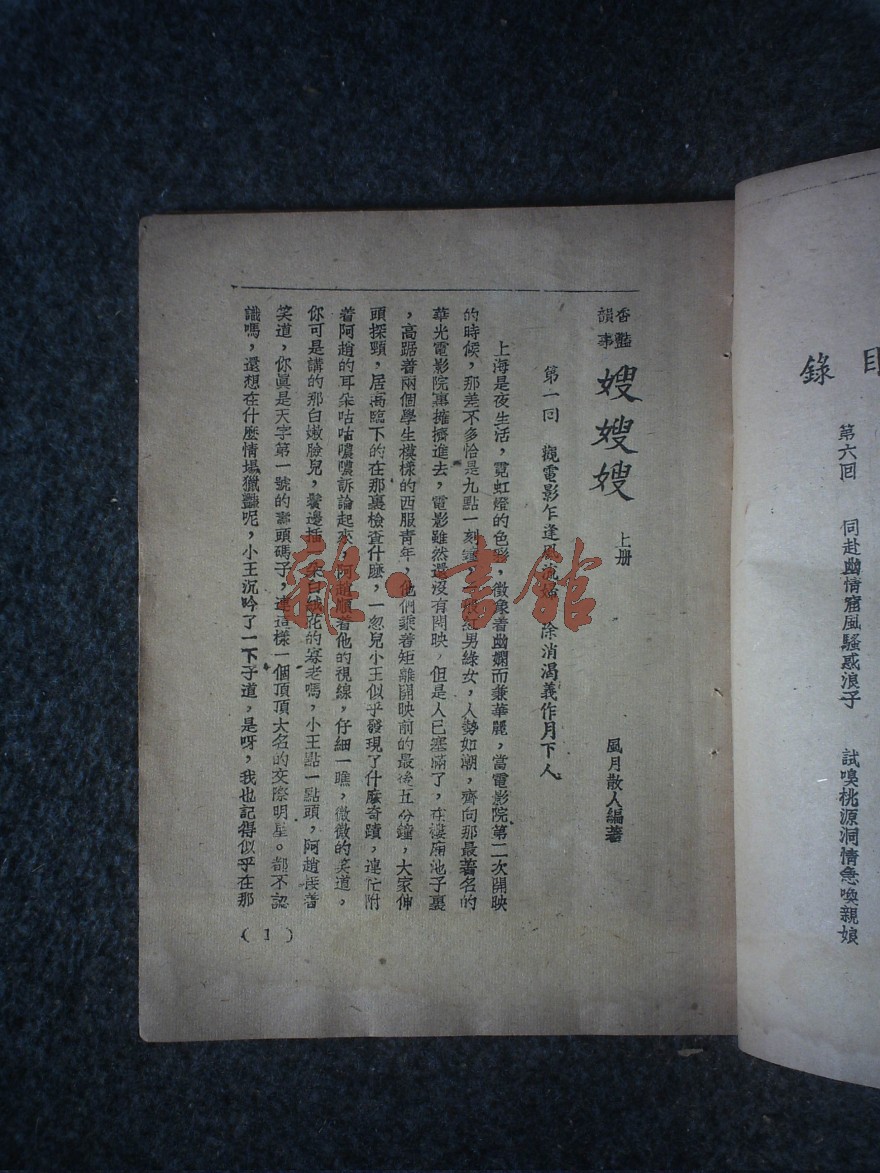 目錄
第六回 同赴幽情窟風騷惑浪子 試嗅桃源洞情急喚親娘
香豔韻事
嫂嫂嫂 上册
風月散人編著
第一回 觀電影乍逢風流 除消渴義作月下人
上海是夜生活，霓虹燈的色彩，徵象着幽嫻而兼華麗，當電影院第二次開映
的時候，那差不多恰是九點一刻鐘，紅男綠女，人勢如潮，齊向那最著名的
華光電影院裏擁擠進去，電影雖然還沒有開映，但是人已塞滿了，在樓廂池子裏
，高踞着兩個學生模樣的西服青年，他們乘着矩離開映前的最後五分鐘，大家伸
頭探頸，居高臨下的在那裏檢查什麽，一忽兒小王似乎發現了什麽奇蹟，連忙附
着阿趙的耳朵咕咕噥噥訴論起來，阿趙順着他的視線，仔細一瞧，微微的笑道，
你可是講的那白嫩臉兒，鬢邊插一朵白絨花的寡老嗎，小王點一點頭，阿趙接着
笑道，你眞是天字第一號的壽頭碼子，連這樣一個頂頂大名的交際明星。都不認
識嗎，還想在什麽情場獵豔呢，小王沉吟了一下子道，是呀，我也記得似乎在那
(1)
雜·書館